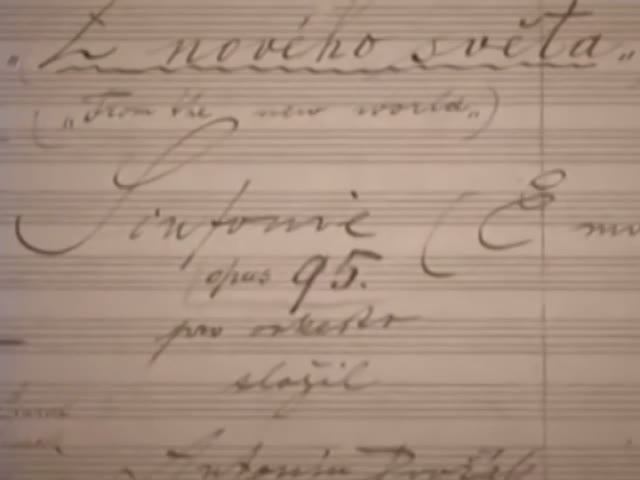 „Z nového světa„
(„From the new world„)
Sinfonie (E mo
opus 95.
pro orkestr
složil
Antonín Dvořák